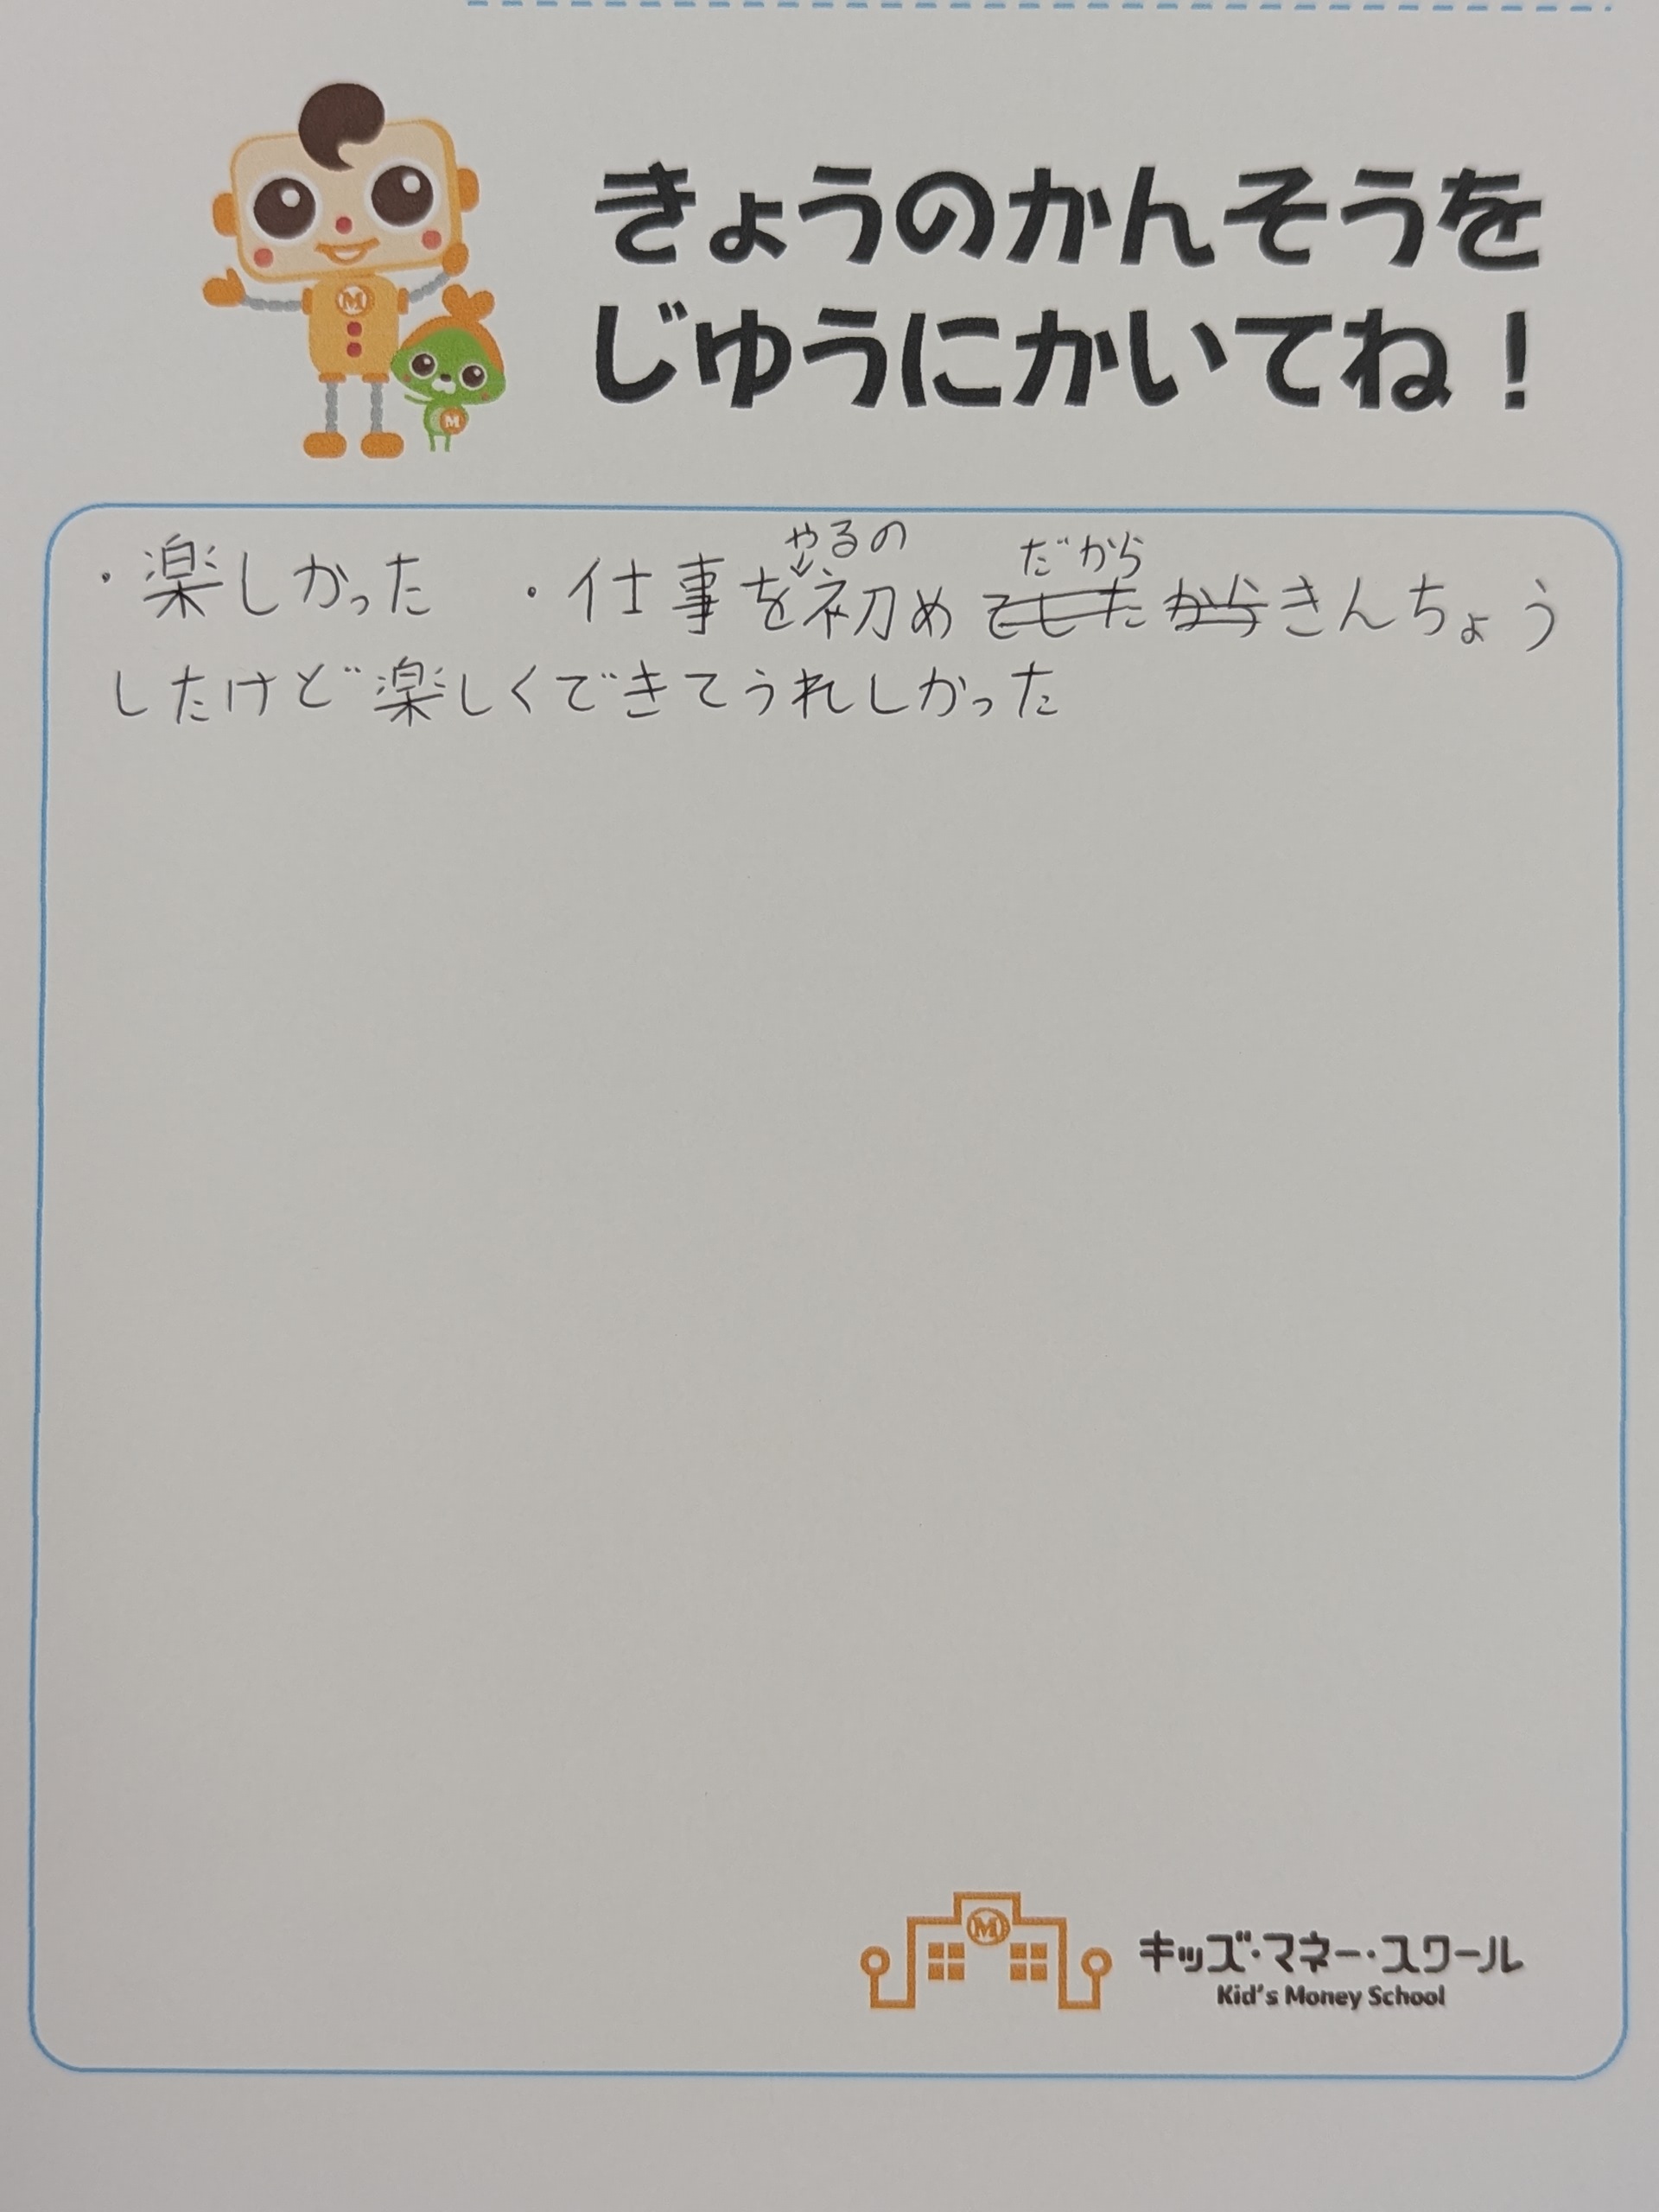 きょうのかんそうを
じゆうにかいてね！
・楽しかった ・仕事をやるの初めだからきんちょう
したけど楽しくできてうれしかった
M
キッズ・マネー・スクール
Kid's Money School